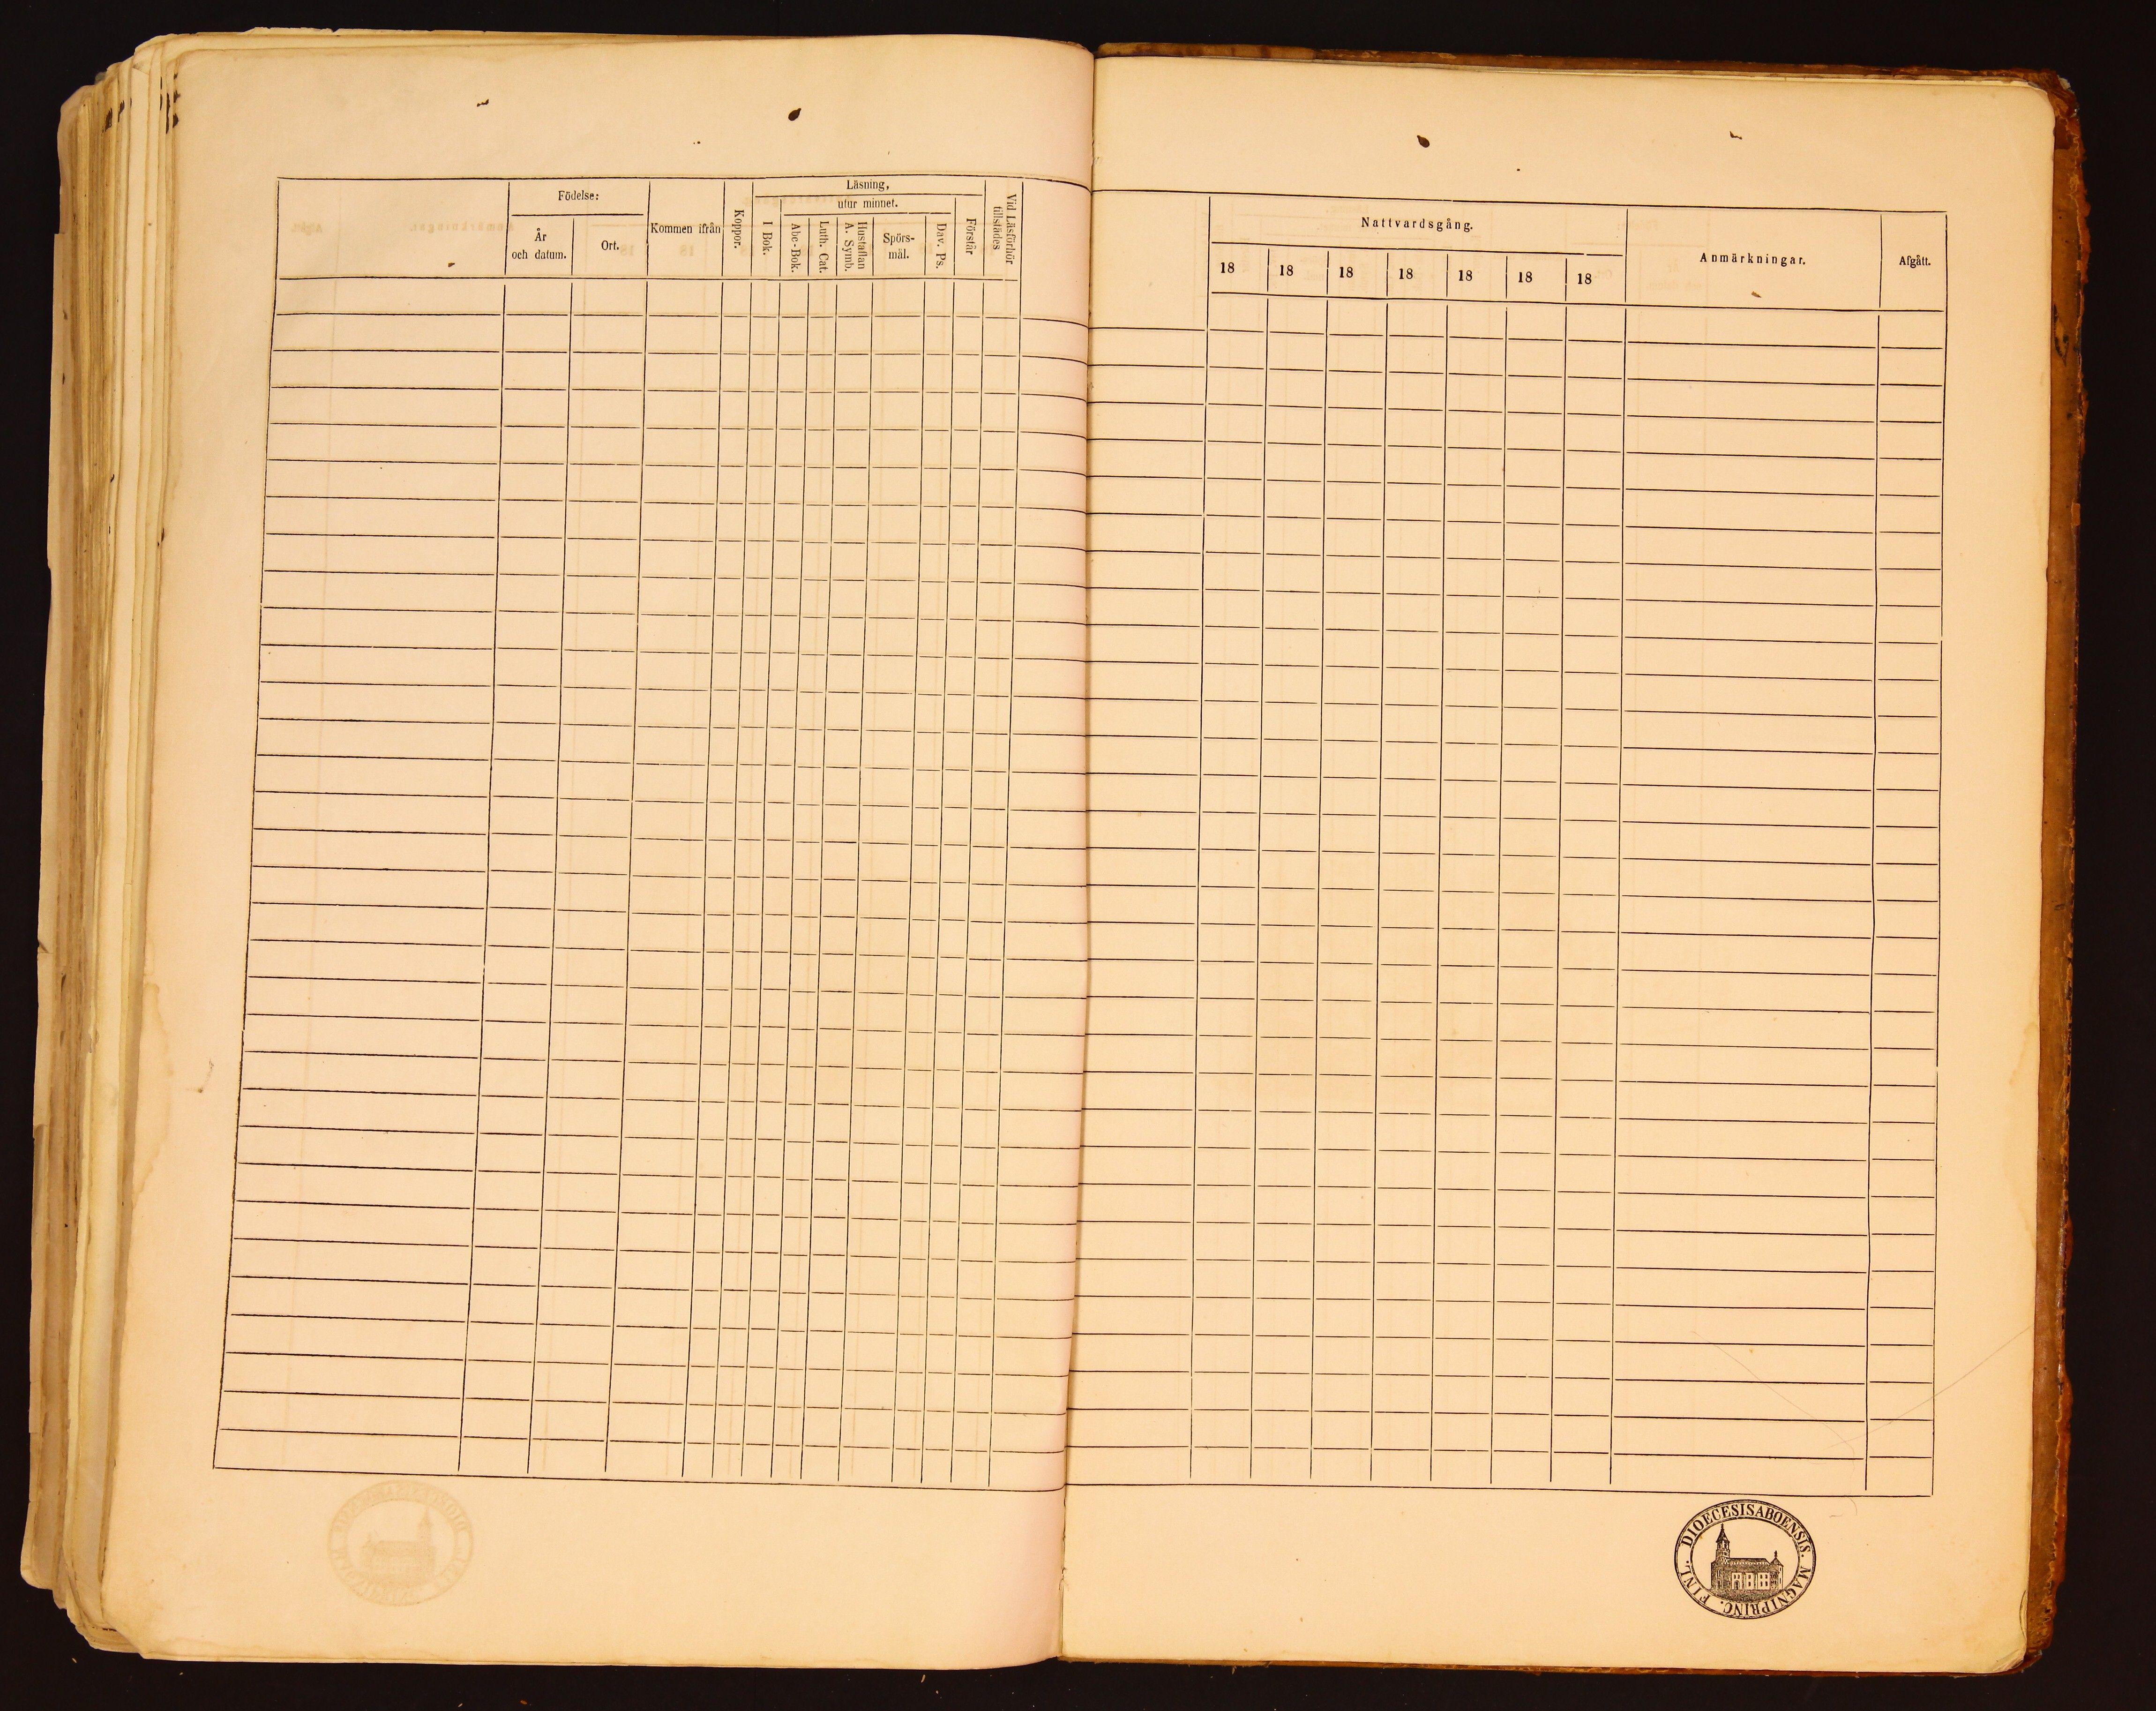 Födelse:
År
och datum.
Ort.
Kommen ifrån
Koppor.
Läsning,
utur minnet.
I Bok.
Abc-Bok.
Luth. Cat.
Hustaflan
A. Symb.
Spörs-
mål.
Dav. Ps.
Förstår
Vid Läsförhör
tillstädes
Nattvardsgång.
18 18 18 18 18 18 18
Anmärkningar.
Afgått.
DIOECESIS ABOENSIS. MAGNI PRINC. FINL.